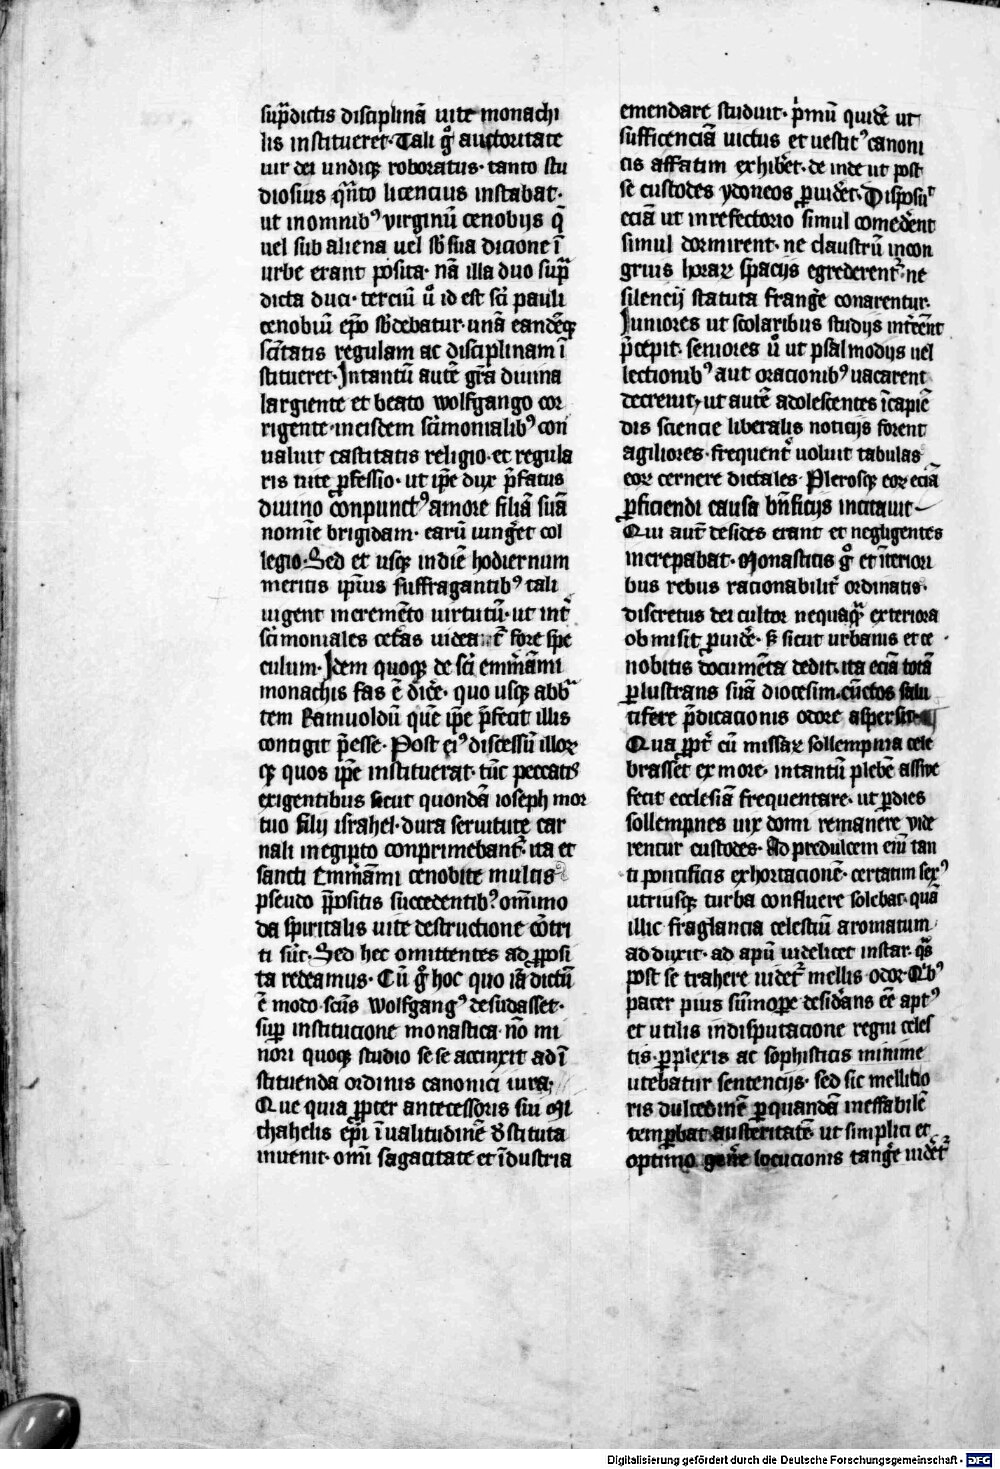 sup̄dictis disciplinā uite monachi
lis institueret· Tali gͦ auctoritate
uir dei undiqꝫ roboratus· tanto stu
diosius qn̄to licencius instabat·
ut in omnibꝰ virginū cenobijs q̄
uel sub aliena uel sb̄ sua dicione ī
urbe erant posita· nā illa duo sup̄
dicta duci· terciū uͦ id est sc̄i pauli
cenobiū ep̄o sb̄debatur· unā eandēqꝫ
sc̄itatis regulam ac disciplinam ī
stitueret· Intantū autē gr̄a diuina
largiente et beato wolfgango cor
rigente· in eisdem sc̄imonialibꝰ con
ualuit castitatis religio· et regula
ris uite ꝓfessio· ut ip̄e dux p̄fatus
diuino conpunctꝰ amore filiā suā
nomīe brigidam· earū iungēt col
legio· Sed et usqꝫ in diē hodiernum
meritis ip̄ius suffragantibꝰ tali
uigent incremēto uirtutū· ut int̄
sc̄imoniales cet̄as uideant̄ fore spe
culum· Idem quoqꝫ de sc̄i emm̄ami
monachis fas ē dic̄e· quo usqꝫ abb̄a
tem Ramuoldū quē ip̄e p̄fecit illis
contigit p̄esse· Post eiꝰ discessū illoꝝ
qꝫ quos ip̄e instituerat· tūc peccatis
exigentibus sicut quondā ioseph mor
tuo filij israhel· dura seruitute car
nali in egipto conprimebant̄· ita et
sancti Emm̄ami cenobite multis
pseudo p̄positis succedentibꝰ om̄imo
da spiritalis uite destructione cōtri
ti sūt· Sed hec omittentes ad ꝓposi
ta redeamus· Cū gͦ hoc quo iā dictū
ē modo sc̄us wolfgangꝰ desudasset·
suꝑ institucione monastica· nō mi
nori quoqꝫ studio se se accinxit ad ī
stituenda ordinis canonici iura·
Que quia ꝓpter antecessoris sui Mi
chahelis ep̄i īualitudinē dstituta
inuenit· omī sagacitate et īdustria
emendare studuit· p̄mū quidē ut
sufficenciā uictus et uestitꝰ canoni
cis affatim exhib̄et· de inde ut post
se custodes ydoneos ꝓuid̄et· Disposuit
eciā ut in refectorio simul comed̄ent
simul dormirent· ne claustrū incon
gruis horaꝝ spacijs egrederent̄· ne
silencij statuta franḡe conarentur·
Iuniores ut scolaribus studijs int̄ēnt
p̄cepit· seniores uͦ ut psalmodijs uel
lectionibꝰ aut oracionibꝰ uacarent
decreuit, ut autē adolescentes īcapiē
dis sciencie liberalis noticijs forent
agiliores· frequent̄ uoluit tabulas
eoꝝ cernere dictales· Plerosqꝫ eoꝝ eciā
ꝓficiendi causa bn̄ficijs incitauit
Qui aut̄ desides erant et negligentes
increpabat· Monasticis gͦ et īteriori
bus rebus racionabilit̄ ordinatis·
discretus dei cultor nequaq̄ exteriora
obmisit ꝓuid̄e· s̄ sicut urbanis et ce
nobitis documēta dedit· ita eciā totā
ꝑlustrans suā diocesim· cūctos salu
tifere p̄dicacionis odore aspersit·
Qua ꝓpt̄ cū missaꝝ sollempnia cele
brasset ex more· intantū plebē assue
fecit ecclesiā frequentare· ut ꝑ dies
sollempnes uix domi remanere vide
rentur custodes· Ad predulcem eiū tan
ti pontificis exhortacionē· certatim sexꝰ
utriusqꝫ turba confluere solebat· quā
illic fraglancia celestiū aromatum
adduxit· ad apū uidelicet instar· qs̄
post se trahere uidet̄ mellis odor· Qͥbꝰ
pater pius sūmoꝑe desid̄ans eē aptꝰ
et utilis in disputacione regni celes
tis· ꝑplexis ac sophisticis minime
utebatur sentencijs· sed sic mellitio
ris dulcedinē ꝑ quandā ineffabilē
temꝑbat austeritatē· ut simplici et
optimo gen̄e locucionis tanḡe uidet̄